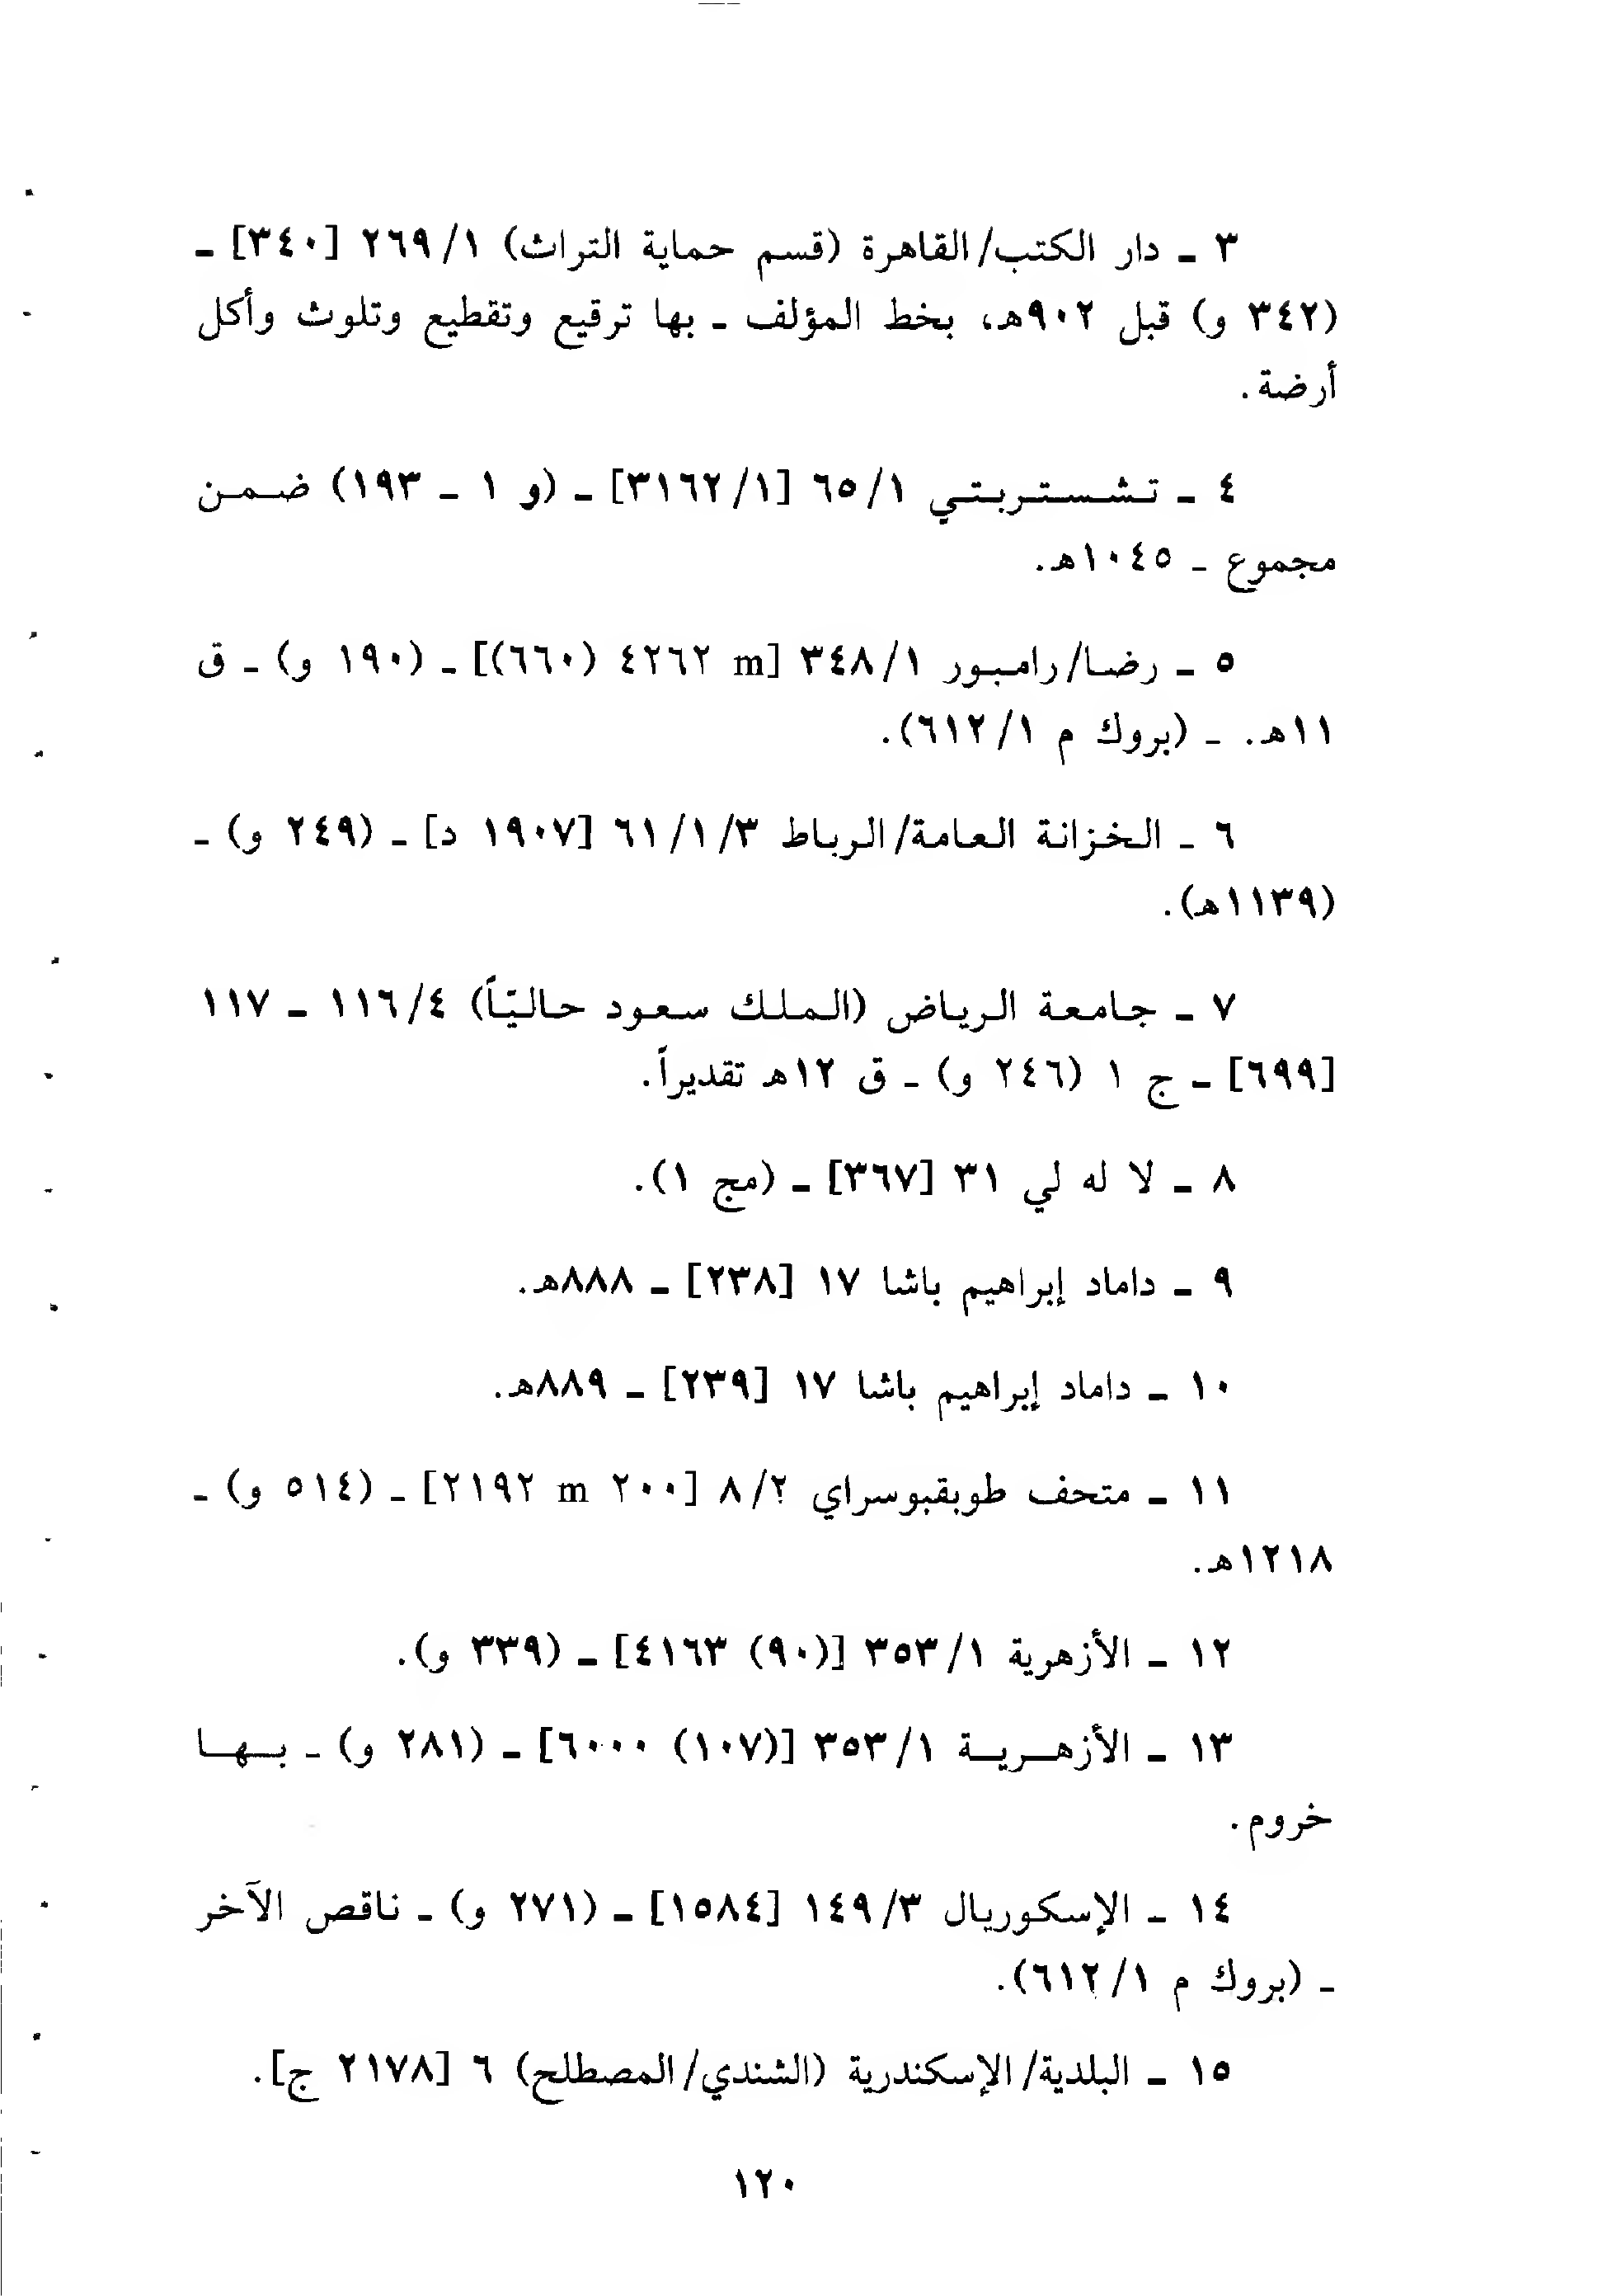 ٣ ـ دار الكتب/القاهرة (قسم حماية التراث) ٢٦٩/١ [٣٤٠] ـ
(٣٤٢ و) قبل ٩٠٢هـ، بخط المؤلف ـ بها ترقيع وتقطيع وتلوث وأكل
أرضة.
٤ ـ تشستربتي ٦٥/١ [٣١٦٢/١] ـ (و ١ ـ ١٩٣) ضمن
مجموع ـ ١٠٤٥هـ.
٥ ـ رضا/رامبور ٣٤٨/١ [m ٤٢٦٢ (٦٦٠)] ـ (١٩٠ و) ـ ق
١١هـ. ـ (بروك م ٦١٢/١).
٦ ـ الخزانة العامة/الرباط ٦١/١/٣ [١٩٠٧ د] ـ (٢٤٩ و) ـ
(١١٣٩هـ).
٧ ـ جامعة الرياض (الملك سعود حاليّاً) ١١٦/٤ ـ ١١٧
[٦٩٩] ـ ج ١ (٢٤٦ و) ـ ق ١٢هـ تقديراً.
٨ ـ لا له لي ٣١ [٣٦٧] ـ (مج ١).
٩ ـ داماد إبراهيم باشا ١٧ [٢٣٨] ـ ٨٨٨هـ.
١٠ ـ داماد إبراهيم باشا ١٧ [٢٣٩] ـ ٨٨٩هـ.
١١ ـ متحف طوبقبوسراي ٨/٢ [٢٠٠ m ٢١٩٢] ـ (٥١٤ و) ـ
١٢١٨هـ.
١٢ ـ الأزهرية ٣٥٣/١ [(٩٠) ٤١٦٣] ـ (٣٣٩ و).
١٣ ـ الأزهرية ٣٥٣/١ [(١٠٧) ٦٠٠٠] ـ (٢٨١ و) ـ بها
خروم.
١٤ ـ الإسكوريال ١٤٩/٣ [١٥٨٤] ـ (٢٧١ و) ـ ناقص الآخر
ـ (بروك م ٦١٢/١).
١٥ ـ البلدية/الإسكندرية (الشندي/المصطلح) ٦ [٢١٧٨ ج].
١٢٠